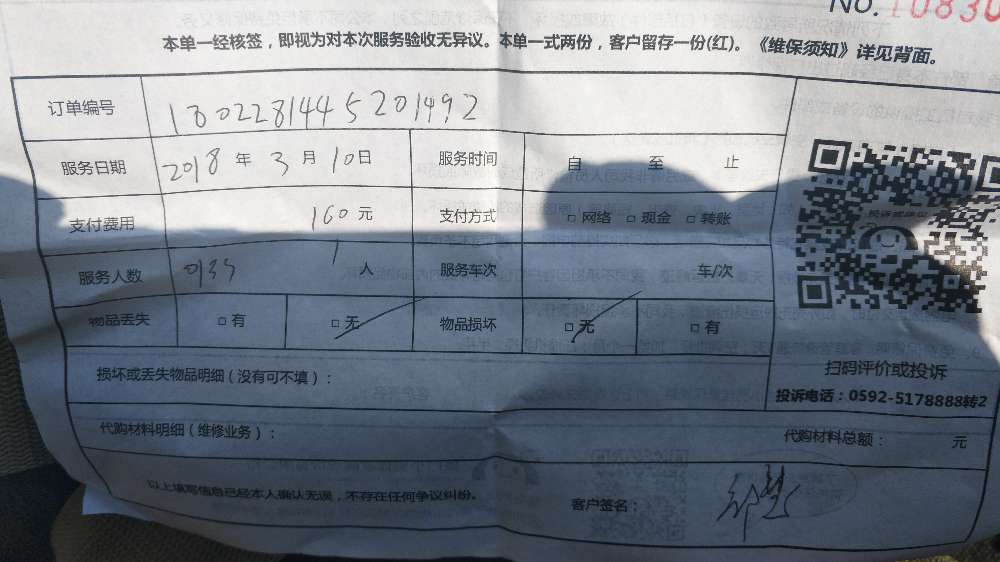 No. 10830
本单一经核签，即视为对本次服务验收无异议。本单一式两份，客户留存一份(红)。《维保须知》详见背面。
订单编号 1802281445201492
服务日期 2018 年 3 月 10 日 服务时间 自 至 止
支付费用 160 元 支付方式 □ 网络 □ 现金 □ 转账
服务人数 0133 1 人 服务车次 车/次
物品丢失 □ 有 □ 无 物品损坏 □ 无 □ 有
扫码评价或投诉
投诉电话：0592-5178888转2
损坏或丢失物品明细（没有可不填）：
代购材料明细（维修业务）： 代购材料总额： 元
以上填写信息已经本人确认无误，不存在任何争议纠纷。 客户签名：